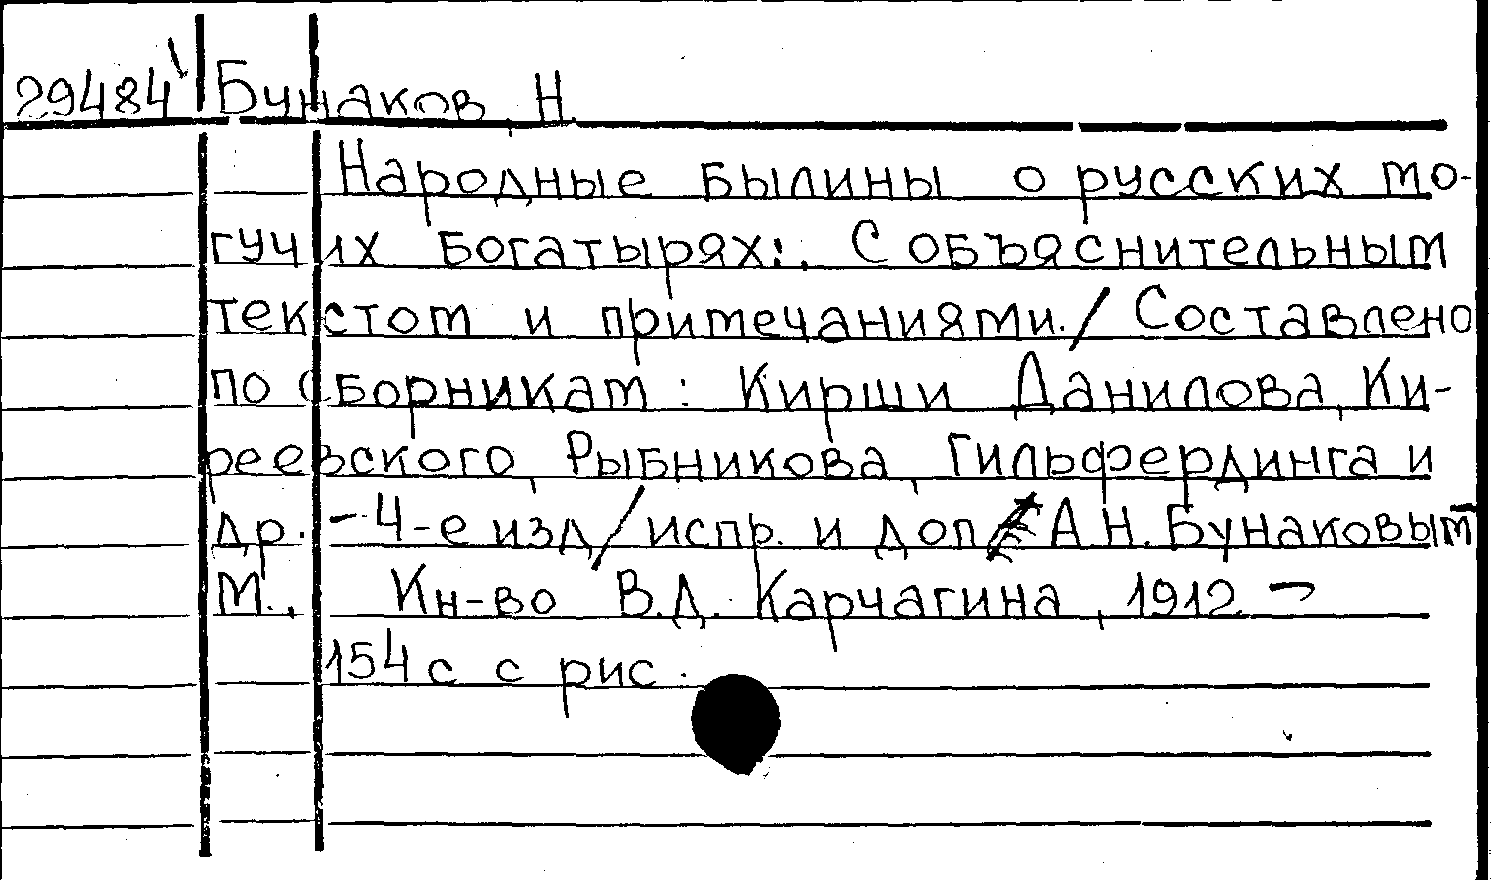 29484 Бунаков, Н.
Народные былины о русских мо-
гучих богатырях: С объяснительным
текстом и примечаниями. / Составлено
по сборникам: Кирши Данилова, Ки-
реевского, Рыбникова, Гильфердинга и
др. - 4-е изд / испр. и доп А.Н. Бунаковым
М., Кн-во В.Д. Карчагина, 1912 -
154 с с рис.